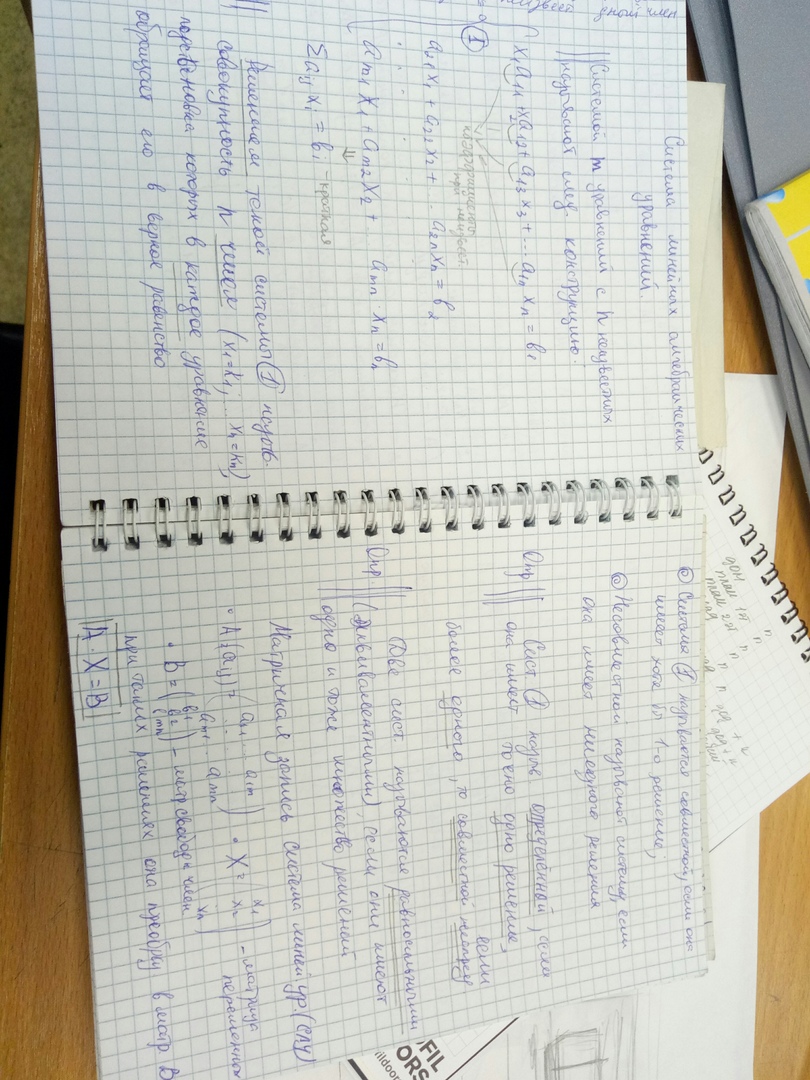 Система линейных алгебраических
уравнений.
Системой m уравнений с n неизвестных
называют след. конструкцию:
x₁a₁₁ + x₂a₁₂ + a₁₃x₃ + ... a₁ₙ xₙ = b₁
коэффициенты
при неизвест.
①
a₂₁x₁ + a₂₂x₂ + ... a₂ₙxₙ = b₂
. . . .
aₘ₁x₁ + aₘ₂x₂ + ... aₘₙ · xₙ = bₙ
⇓
Σaᵢⱼ xᵢ = bᵢ - краткая
Решением такой системы ① назыв.
совокупность n чисел (x₁=k₁, ... xₙ=kₙ),
подстановка которых в каждое уравнение
обращает его в верное равенство
неизвест
дный член
Система ① называется совместной, если она
имеет хотя бы 1-о решение;
Несовместной называют систему, если
она имеет ниодного решения
Опр Сист. ① назыв. определённой, если
она имеет точно одно решение,
если
более одного, то совместной неопред
Опр. Две сист. называются равносильными
(эквивалентными), если они имеют
одно и тоже множество решений
Матричная запись система линей. ур. (САУ)
• A(aᵢⱼ) = (a₁₁ ... a₁ₘ ... aₘ₁ ... aₘₙ) • X = (x₁ x₂ xₙ) - матрица
переменных
• B = (b₁ b₂ bₘₙ) - матр свобод член
при таких решениях она преобру в матр. В
A · X = B
дом
план 1эт п
план 2эт п
фад п
OFIL
DOORS